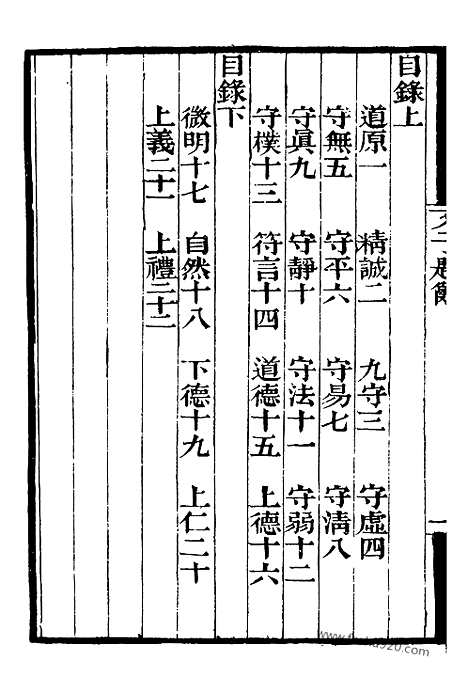 目錄上
道原一　精誠二　九守三　守虛四
守無五　守平六　守易七　守清八
守眞九　守靜十　守法十一　守弱十二
守樸十三　符言十四　道德十五　上德十六
目錄下
微明十七　自然十八　下德十九　上仁二十
上義二十一　上禮二十二